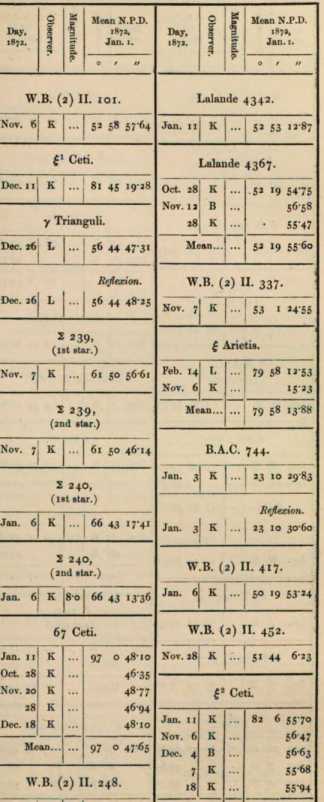 Day, 1872. Observer. Magnitude. Mean N.P.D. 1872, Jan. 1.
° ′ ″
W.B. (2) II. 101.
Nov. 6 K ... 52 58 57·64
ξ¹ Ceti.
Dec. 11 K ... 81 45 19·28
γ Trianguli.
Dec. 26 L ... 56 44 47·31
Reflexion.
Dec. 26 L ... 56 44 48·25
Σ 239,
(1st star.)
Nov. 7 K ... 61 50 56·61
Σ 239,
(2nd star.)
Nov. 7 K ... 61 50 46·14
Σ 240,
(1st star.)
Jan. 6 K ... 66 43 17·41
Σ 240,
(2nd star.)
Jan. 6 K 8·0 66 43 13·36
67 Ceti.
Jan. 11 K ... 97 0 48·10
Oct. 28 K ... 46·35
Nov. 20 K ... 48·77
28 K ... 46·94
Dec. 18 K ... 48·10
Mean... ... 97 0 47·65
W.B. (2) II. 248.
Day, 1872. Observer. Magnitude. Mean N.P.D. 1872, Jan. 1.
° ′ ″
Lalande 4342.
Jan. 11 K ... 52 53 12·87
Lalande 4367.
Oct. 28 K ... 52 19 54·75
Nov. 12 B ... 56·58
28 K ... 55·47
Mean... ... 52 19 55·60
W.B. (2) II. 337.
Nov. 7 K ... 53 1 24·55
ξ Arietis.
Feb. 14 L ... 79 58 12·53
Nov. 6 K ... 15·23
Mean... ... 79 58 13·88
B.A.C. 744.
Jan. 3 K ... 23 10 29·83
Reflexion.
Jan. 3 K ... 23 10 30·60
W.B. (2) II. 417.
Jan. 6 K ... 50 19 53·24
W.B. (2) II. 452.
Nov. 28 K ... 51 44 6·23
ξ² Ceti.
Jan. 11 K ... 82 6 55·70
Nov. 6 K ... 56·47
Dec. 4 B ... 56·63
7 K ... 55·68
18 K ... 55·94